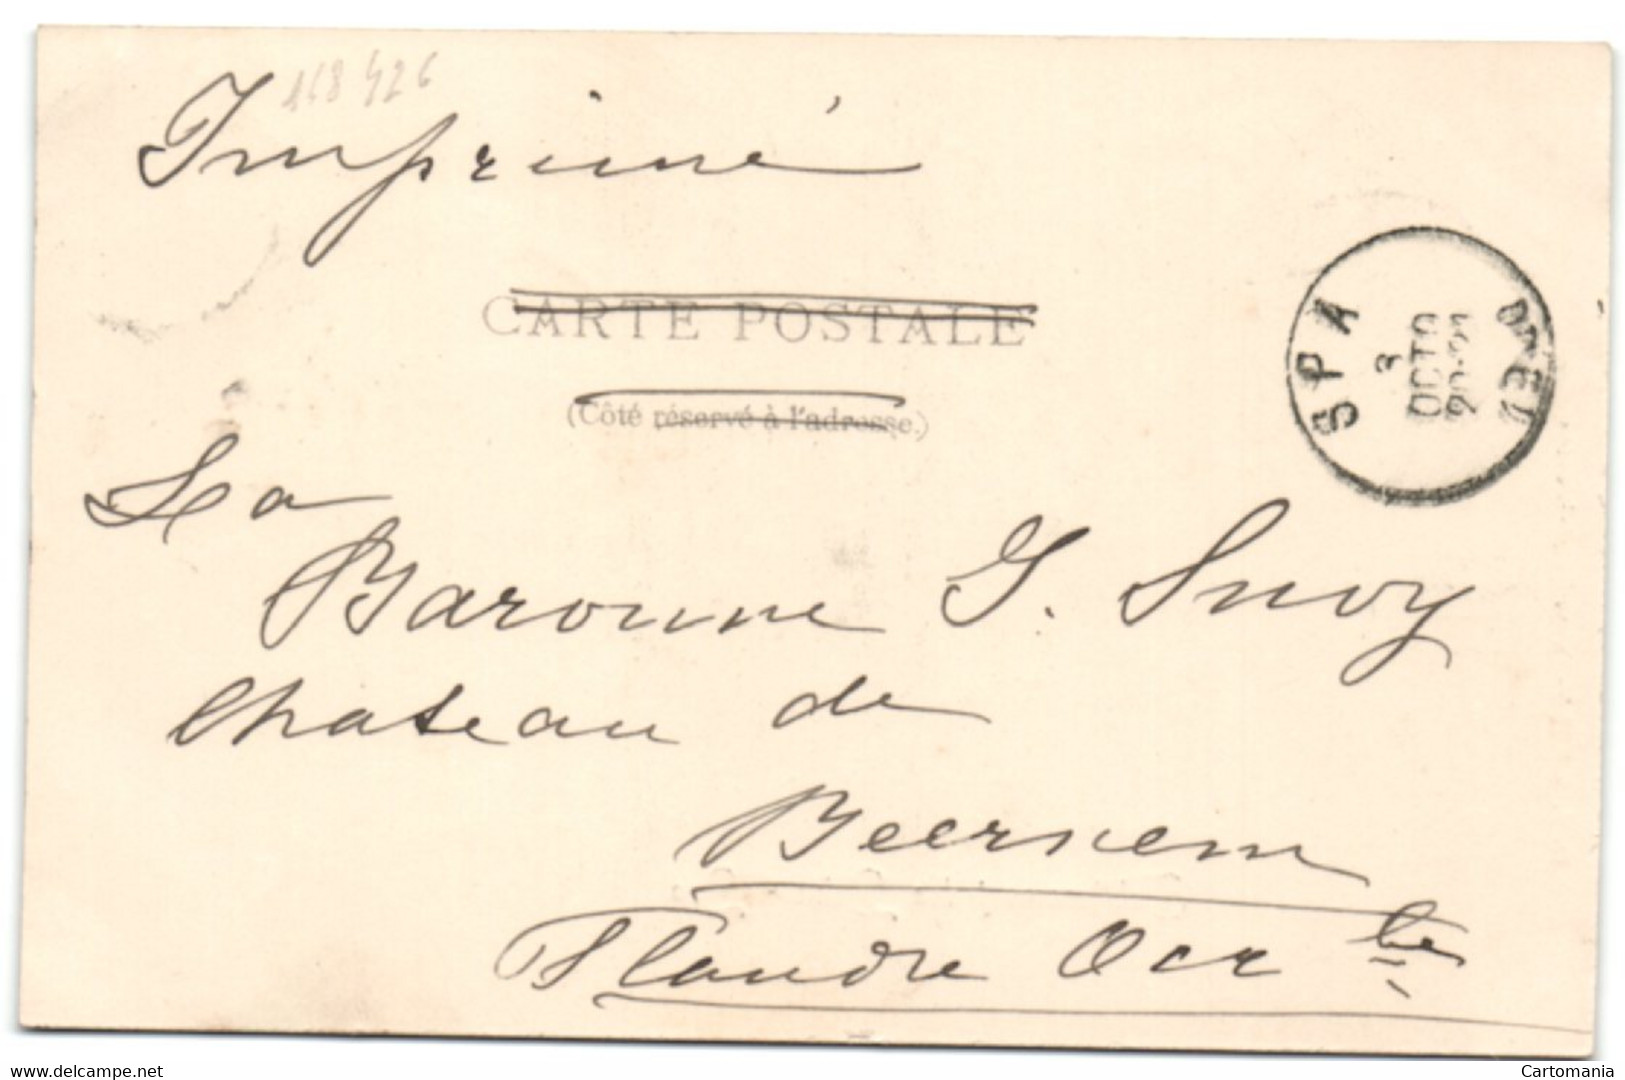 168426
Imprimé
CARTE POSTALE
(Côté réservé à l'adresse.)
SPA
3
OCTO
20-21
La
Baronne G. Snoy
Chateau de
Beernem
Flandre Occ^le
delcampe.net
Cartomania